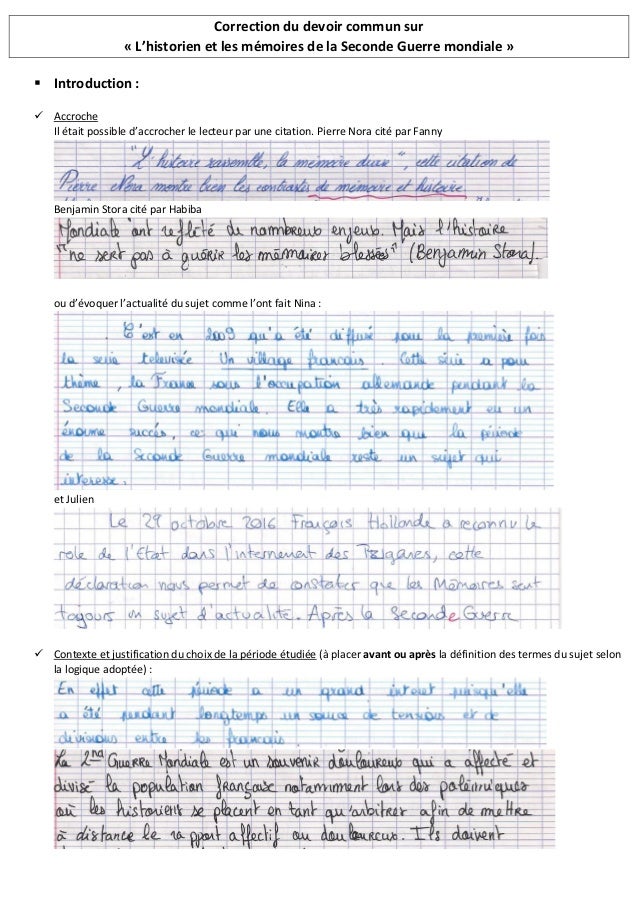 Correction du devoir commun sur
« L’historien et les mémoires de la Seconde Guerre mondiale »
▪ Introduction :
✓ Accroche
Il était possible d’accrocher le lecteur par une citation. Pierre Nora cité par Fanny
"L'histoire rassemble, la mémoire divise", cette citation de
Pierre Nora montre bien les contrastes de mémoire et histoire.
Benjamin Stora cité par Habiba
Mondiale ont reflété de nombreux enjeux. Mais l'histoire
"ne sert pas à guérir les mémoires blessées" (Benjamin Stora).
ou d’évoquer l’actualité du sujet comme l’ont fait Nina :
C'est en 2009 qu'a été diffusé pour la première fois
la serie televisée Un village français. Cette série a pour
thème, la France sous l'occupation allemande pendant la
Seconde Guerre mondiale. Elle a très rapidement eu un
énorme succés, ce qui nous montre bien que la période
de la Seconde Guerre mondiale reste un sujet qui
interesse.
et Julien
Le 29 octobre 2016 François Hollande a reconnu le
role de l'Etat dans l'internement des Tziganes, cette
déclaration nous permet de constater que les Mémoires sont
toujours un sujet d'actualité. Après la Seconde Guerre
✓ Contexte et justification du choix de la période étudiée (à placer avant ou après la définition des termes du sujet selon
la logique adoptée) :
En effet cette période a un grand interet puisqu'elle
a été pendant longtemps un source de tensions et de
divisions entre les francais.
La 2nd Guerre Mondiale est un souvenir douloureux qui a affecté et
divisé la population française notamment lors des polémiques
où les historiens se placent en tant qu'arbitres afin de mettre
à distance le rapport affectif ou douloureux. Ils doivent